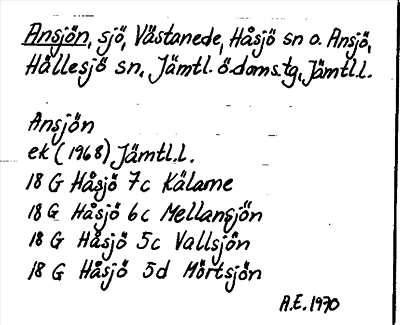 Ansjön, sjö, Västanede, Håsjö sn o. Ansjö,
Hällesjö sn, Jämtl. ö. doms.tg, Jämtl.l.
Ansjön
ek (1968) Jämtl.l.
18 G Håsjö 7c Kälarne
18 G Håsjö 6c Mellansjön
18 G Håsjö 5c Vallsjön
18 G Håsjö 5d Mörtsjön
A.E. 1970